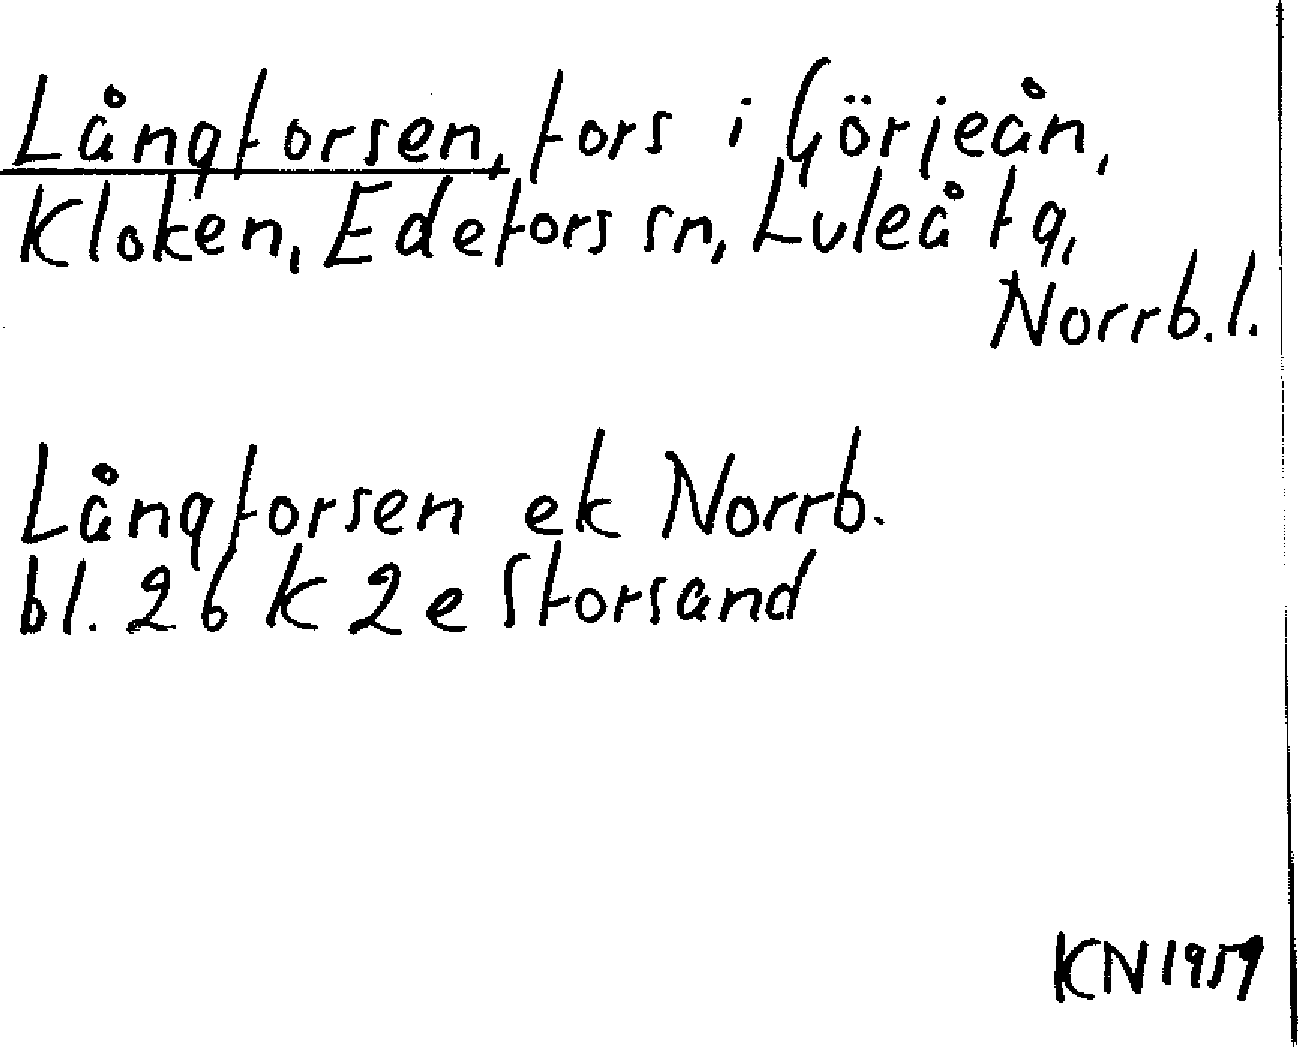 Långforsen, fors i Görjeån,
Kloken, Edefors sn, Luleå tg,
Norrb. l.
Långforsen ek Norrb.
bl. 26 K 2 e Storsand
KN 1959